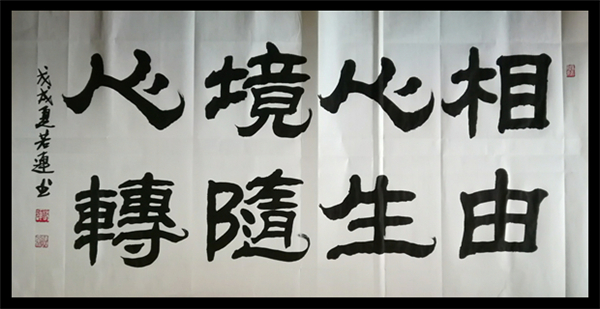 相由
心生
境隨
心轉
戊戌夏若連书